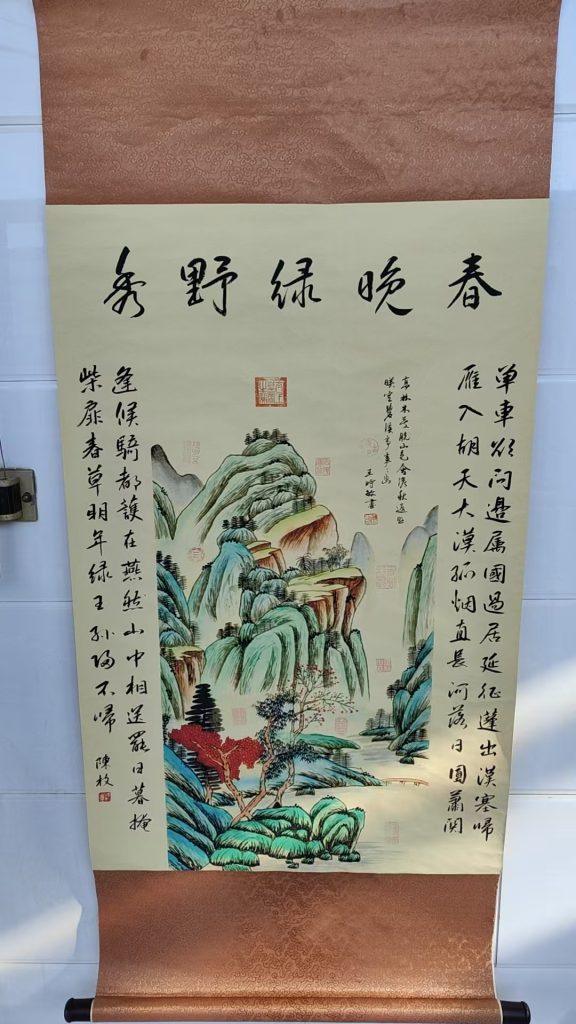 春晚绿野秀
单車欲问邊属國過居延征蓬出漢塞歸
雁入胡天大漠孤烟直長河落日圓蕭関
王時敏書
逢候騎都護在燕然山中相送罷日暮掩
柴扉春草明年绿王孙归不歸
陳枚